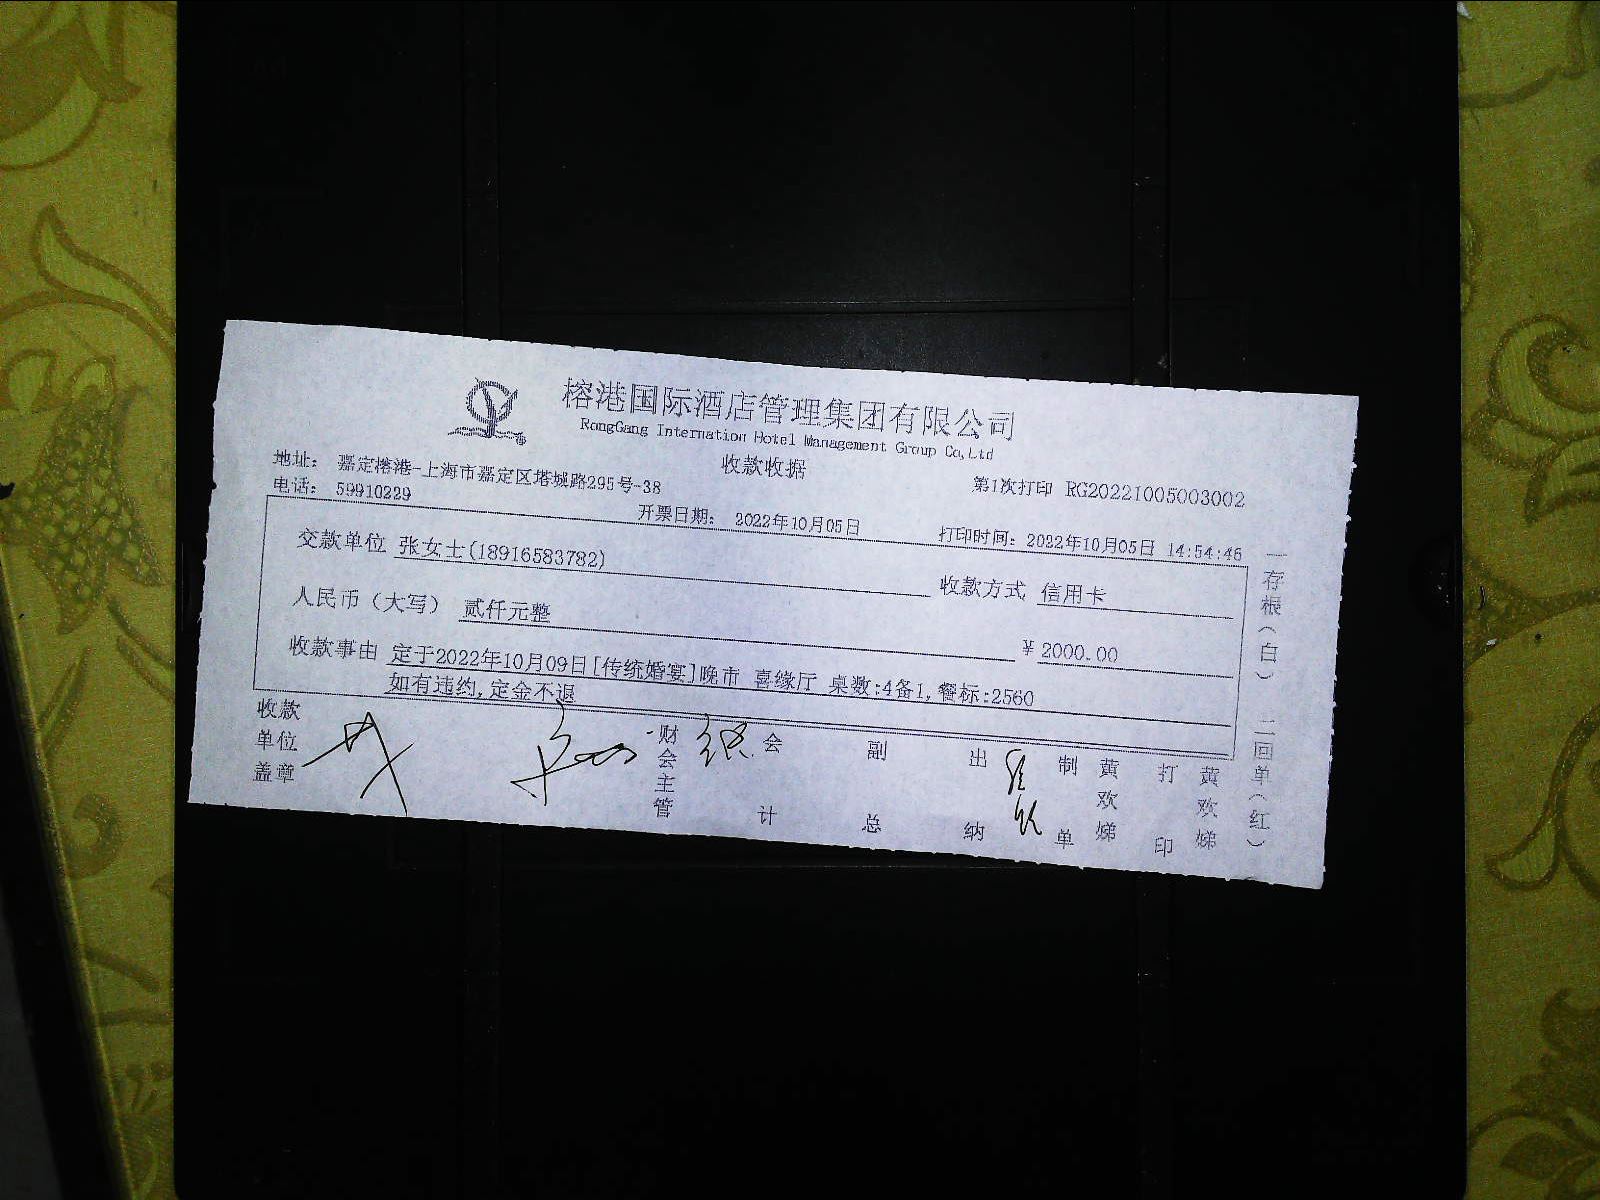 榕港国际酒店管理集团有限公司
RongGang Internation Hotel Management Group Co,Ltd
收款收据
地址： 嘉定榕港-上海市嘉定区塔城路295号-38
第1次打印 RG20221005003002
电话： 59910229
开票日期： 2022年10月05日
打印时间：2022年10月05日 14:54:46
交款单位 张女士(18916583782)
收款方式 信用卡
人民币（大写） 贰仟元整
￥2000.00
收款事由 定于2022年10月09日[传统婚宴]晚市 喜缘厅 桌数:4备1,餐标:2560
如有违约,定金不退
收款单位盖章
财会主管
会计
副总
出纳
制单 黄欢娣
打印 黄欢娣
一存根（白） 二回单（红）